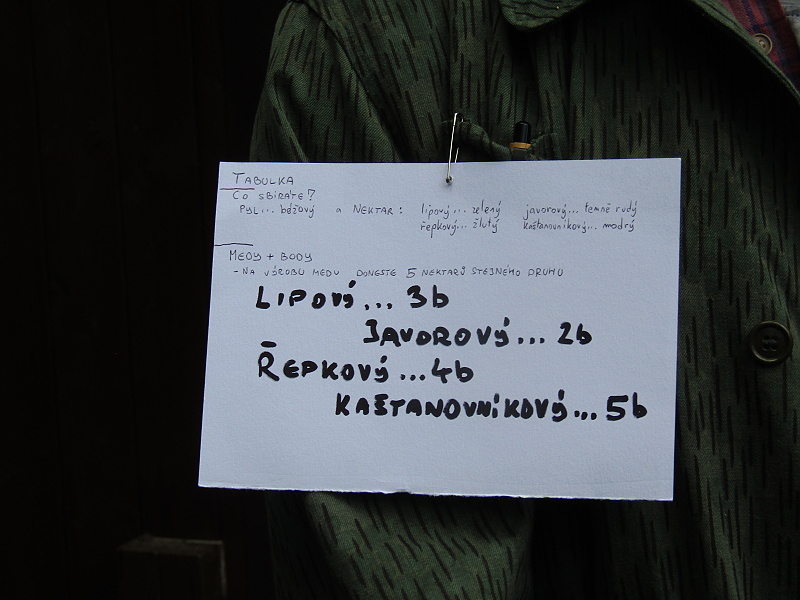 TABULKA
CO SBÍRÁTE?
PYL... béžový a NEKTAR: lipový... zelený javorový... temně rudý
řepkový... žlutý kaštanovníkový... modrý
MEDY + BODY
- NA VÝROBU MEDU DONESTE 5 NEKTARŮ STEJNÉHO DRUHU
LIPOVÝ... 3b
JAVOROVÝ... 2b
ŘEPKOVÝ... 4b
KAŠTANOVNÍKOVÝ... 5b